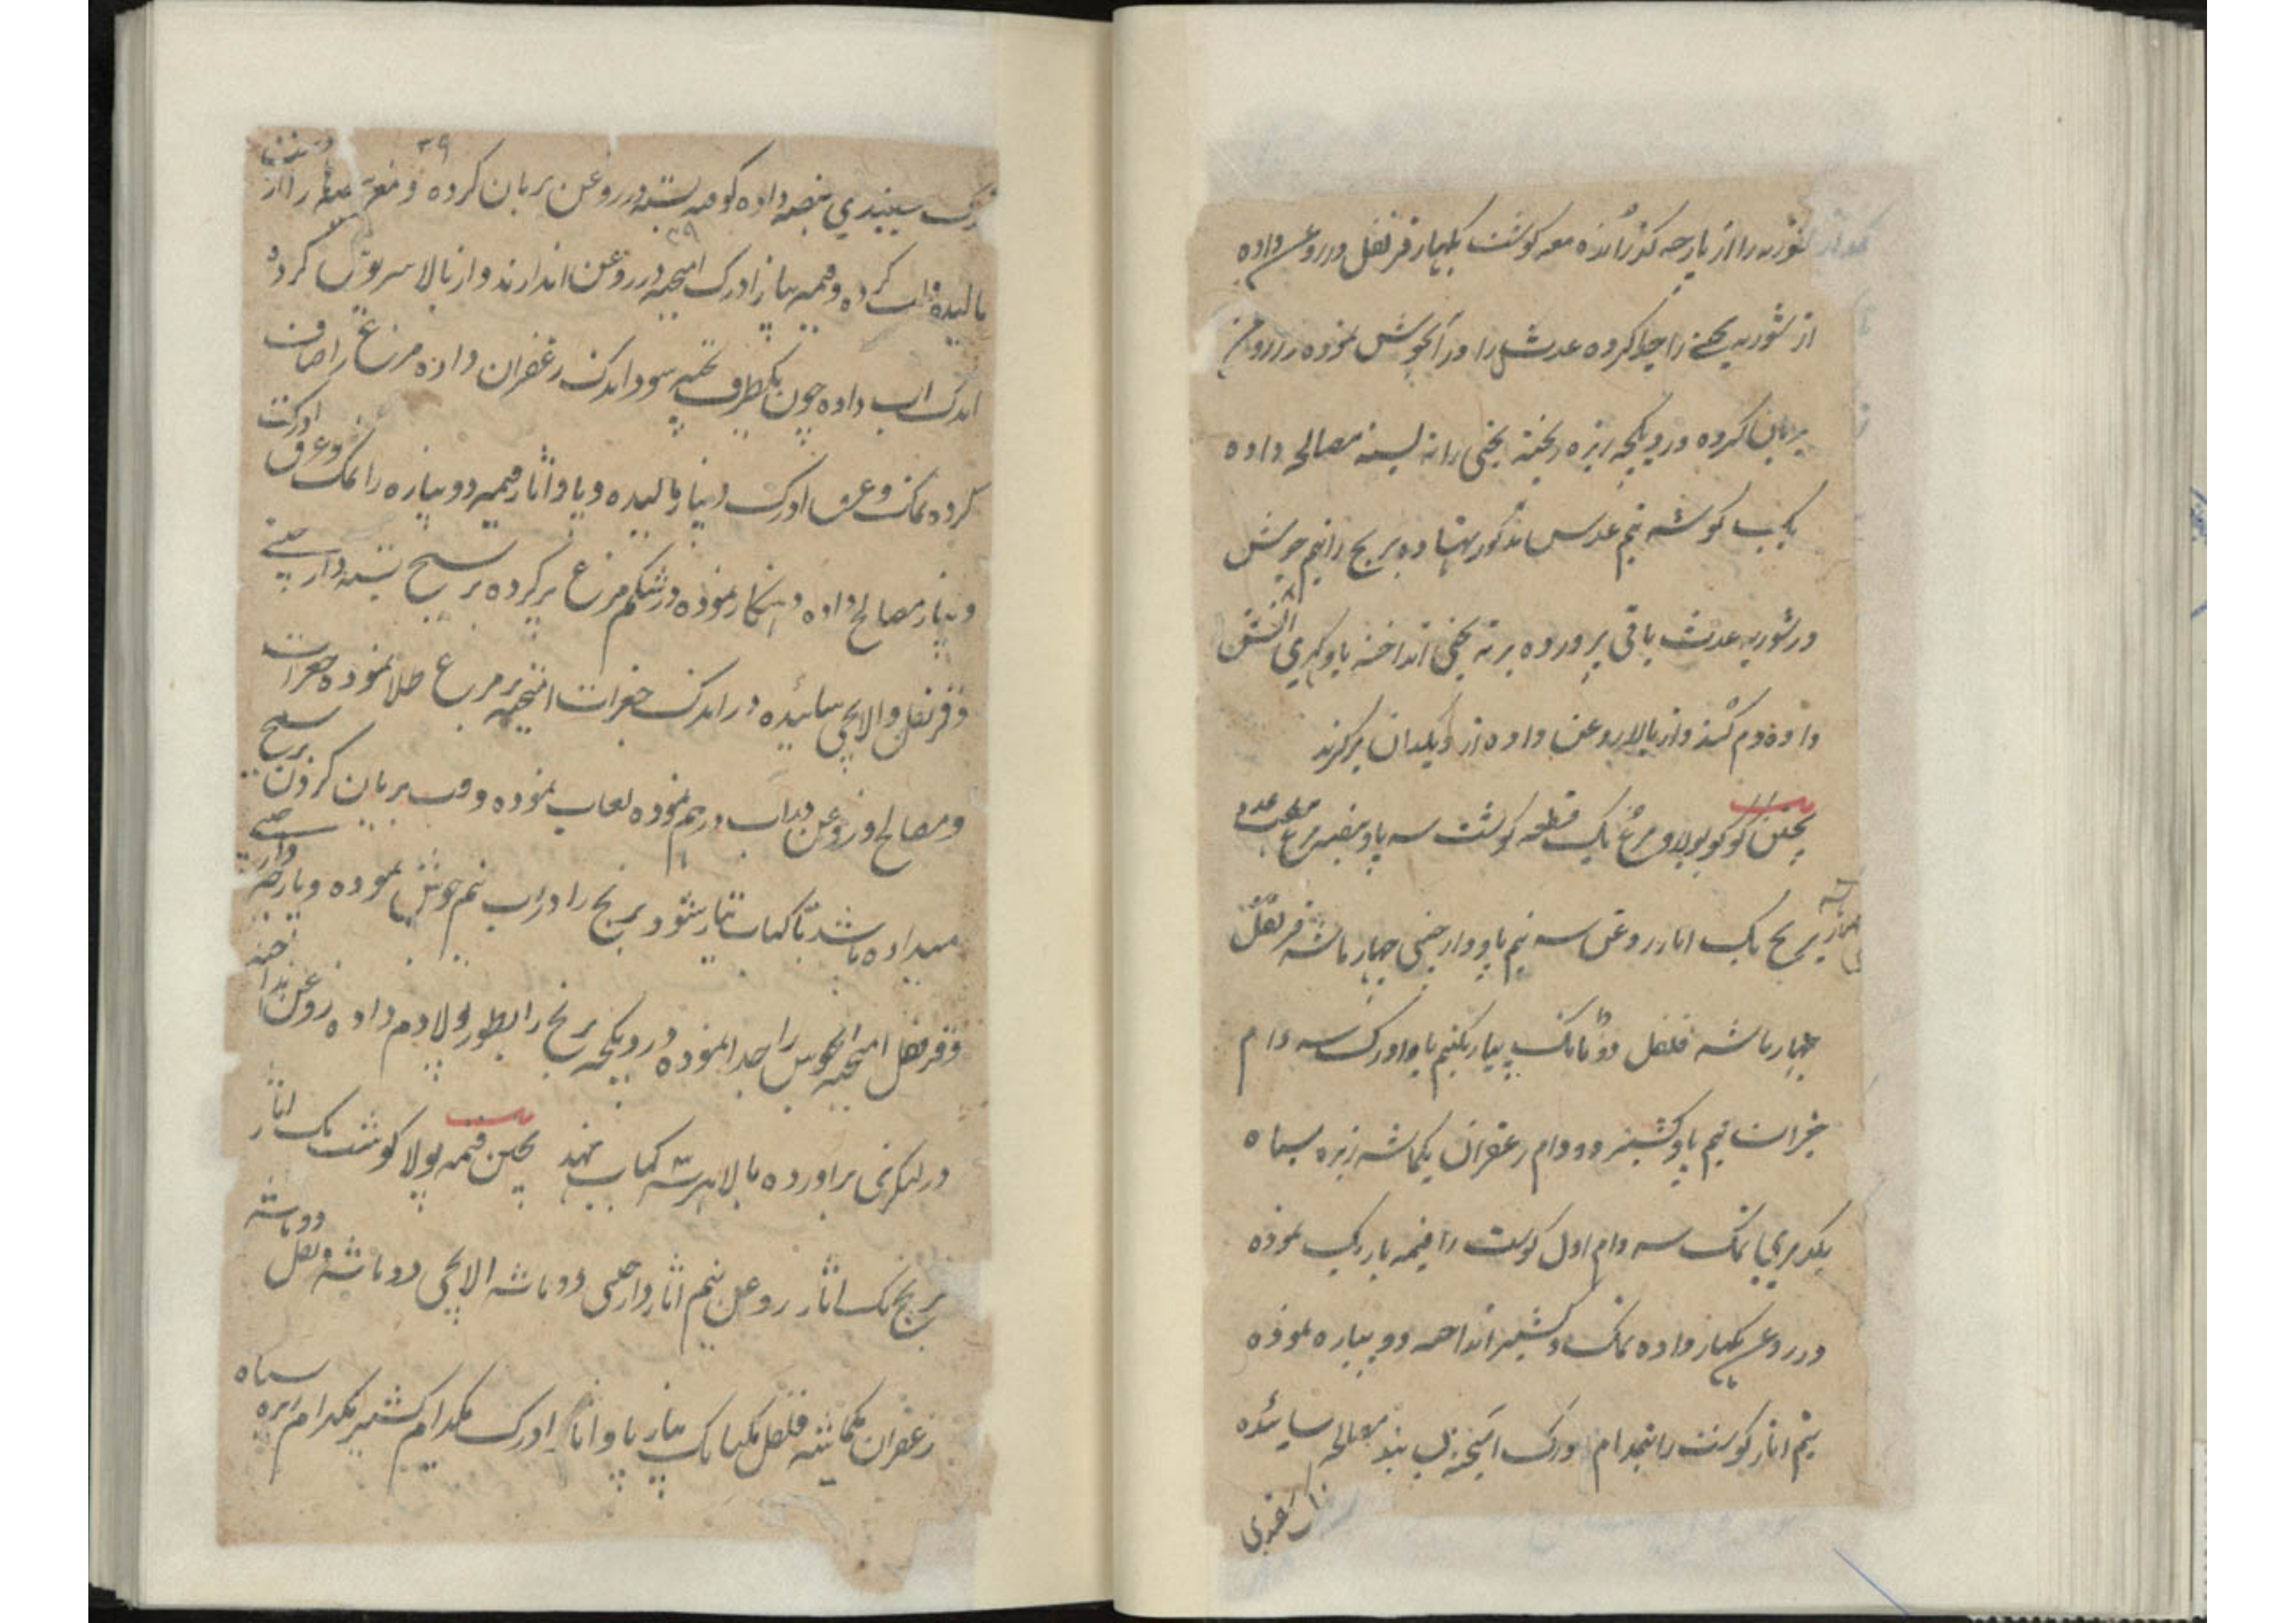 شوربه را از پارچه گذرانده معه گوشت بگهار قرنفل در روغن داده
از شوربه یخنی را جدا کرده عدس را در آبجوش نموده در روغن
بریان کرده در دیگچه زیره ریخته یخنی را ته بسته مصالح داده
یکپ گوشه نیم عدس مذکور نهاده برنج را نیم جوش
در شوربه عدس باقی پرورده بر ته یخنی انداخته پاو گهری آتش
داده دم کنند و از بالا روغن داده از دیگدان برگیرند
پختن کوکو پولاو مرغ یک قطعه گوشت سه پاو بیضه مرغ عدد
برنج یک آثار روغن سه نیم پاو دارچینی چهار ماشه قرنفل
چهار ماشه فلفل دو تانک پیاز یکنیم پاو ادرک سه دام
جغرات نیم پاو کشنیز دو دام زعفران یکماشه زیره سیاه
یکدمری نمک سه دام اول گوشت را قیمه باریک نموده
در روغن بگهار داده نمک و کشنیز انداخته دوپیازه نموده
نیم آثار گوشت را نیمدام ادرک آمیخته مصالح سائیده
۳۹
سفیدی بیضه داده کوفته بسته در روغن بریان کرده و مغز را از
مالیده کرده و قیمه پیاز ادرک آمیخته در روغن اندازند و از بالا سرپوش کرده
اندک آب داده چون یکطرف پخته شود اندک زعفران داده مرغ را صاف
کرده نمک و عرق ادرک و پیاز مالیده و پاو آثار قیمه دوپیازه را نمک و عرق ادرک
و پیاز مصالح داده نموده در شکم مرغ پر کرده بر سیخ بسته دارچینی
و قرنفل و الایچی سائیده در اندک جغرات آمیخته بر مرغ طلا نموده جغرات
و مصالح و روغن و آب درهم نموده لعاب نموده وقت بریان کردن بر سیخ
میداده باشد تا کباب تیار شود برنج را در آب نیم جوش نموده و پارچه دارچینی
و قرنفل آمیخته آبجوش را جدا نموده در دیگچه برنج را بطور پولا دم داده روغن انداخته
در لنگری برآورده بالا برشته کباب نهند پختن قیمه پولا گوشت یک آثار
برنج یک آثار روغن نیم آثار دارچینی دو ماشه الایچی دو ماشه قرنفل دو ماشه
زعفران یکماشه فلفل یکتانک پیاز پاو آثار ادرک یکدام کشنیز یکدام زیره سیاه